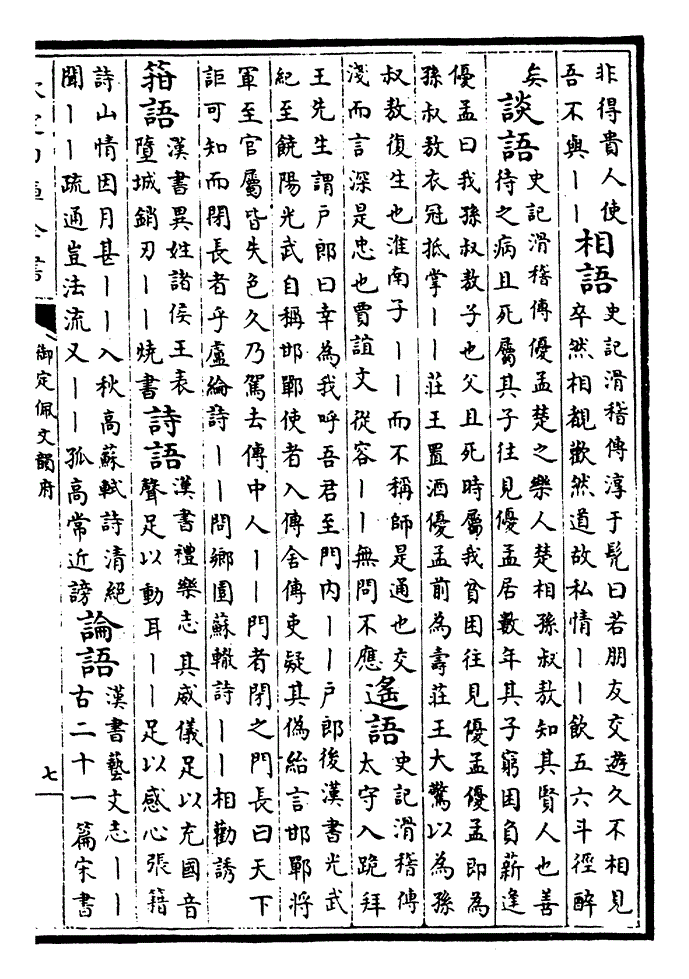 非得貴人使
吾不與〡〡
相語
史記滑稽傳淳于髡曰若朋友交遊久不相見
卒然相覩歡然道故私情〡〡飲五六斗徑醉
矣
談語
史記滑稽傳優孟楚之樂人楚相孫叔敖知其賢人也善
待之病且死屬其子往見優孟居數年其子窮困負薪逢
優孟曰我孫叔敖子也父且死時屬我貧困往見優孟優孟即為
孫叔敖衣冠抵掌〡〡莊王置酒優孟前為壽莊王大驚以為孫
叔敖復生也淮南子〡〡而不稱師是通也交
淺而言深是忠也賈誼文從容〡〡無問不應
遙語
史記滑稽傳
太守入跪拜
王先生謂戶郎曰幸為我呼吾君至門内〡〡戶郎後漢書光武
紀至饒陽光武自稱邯鄲使者入傳舍傳吏疑其偽紿言邯鄲將
軍至官屬皆失色久乃駕去傳中人〡〡門者閉之門長曰天下
詎可知而閉長者乎盧綸詩〡〡問鄉園蘇轍詩〡〡相勸誘
箝語
漢書異姓諸侯王表
墮城銷刃〡〡燒書
詩語
漢書禮樂志其威儀足以充國音
聲足以動耳〡〡足以感心張籍
詩山情因月甚〡〡入秋高蘇軾詩清絕
聞〡〡疏通豈法流又〡〡孤高常近謗
論語
漢書藝文志〡〡
古二十一篇宋書
御定佩文韻府
七